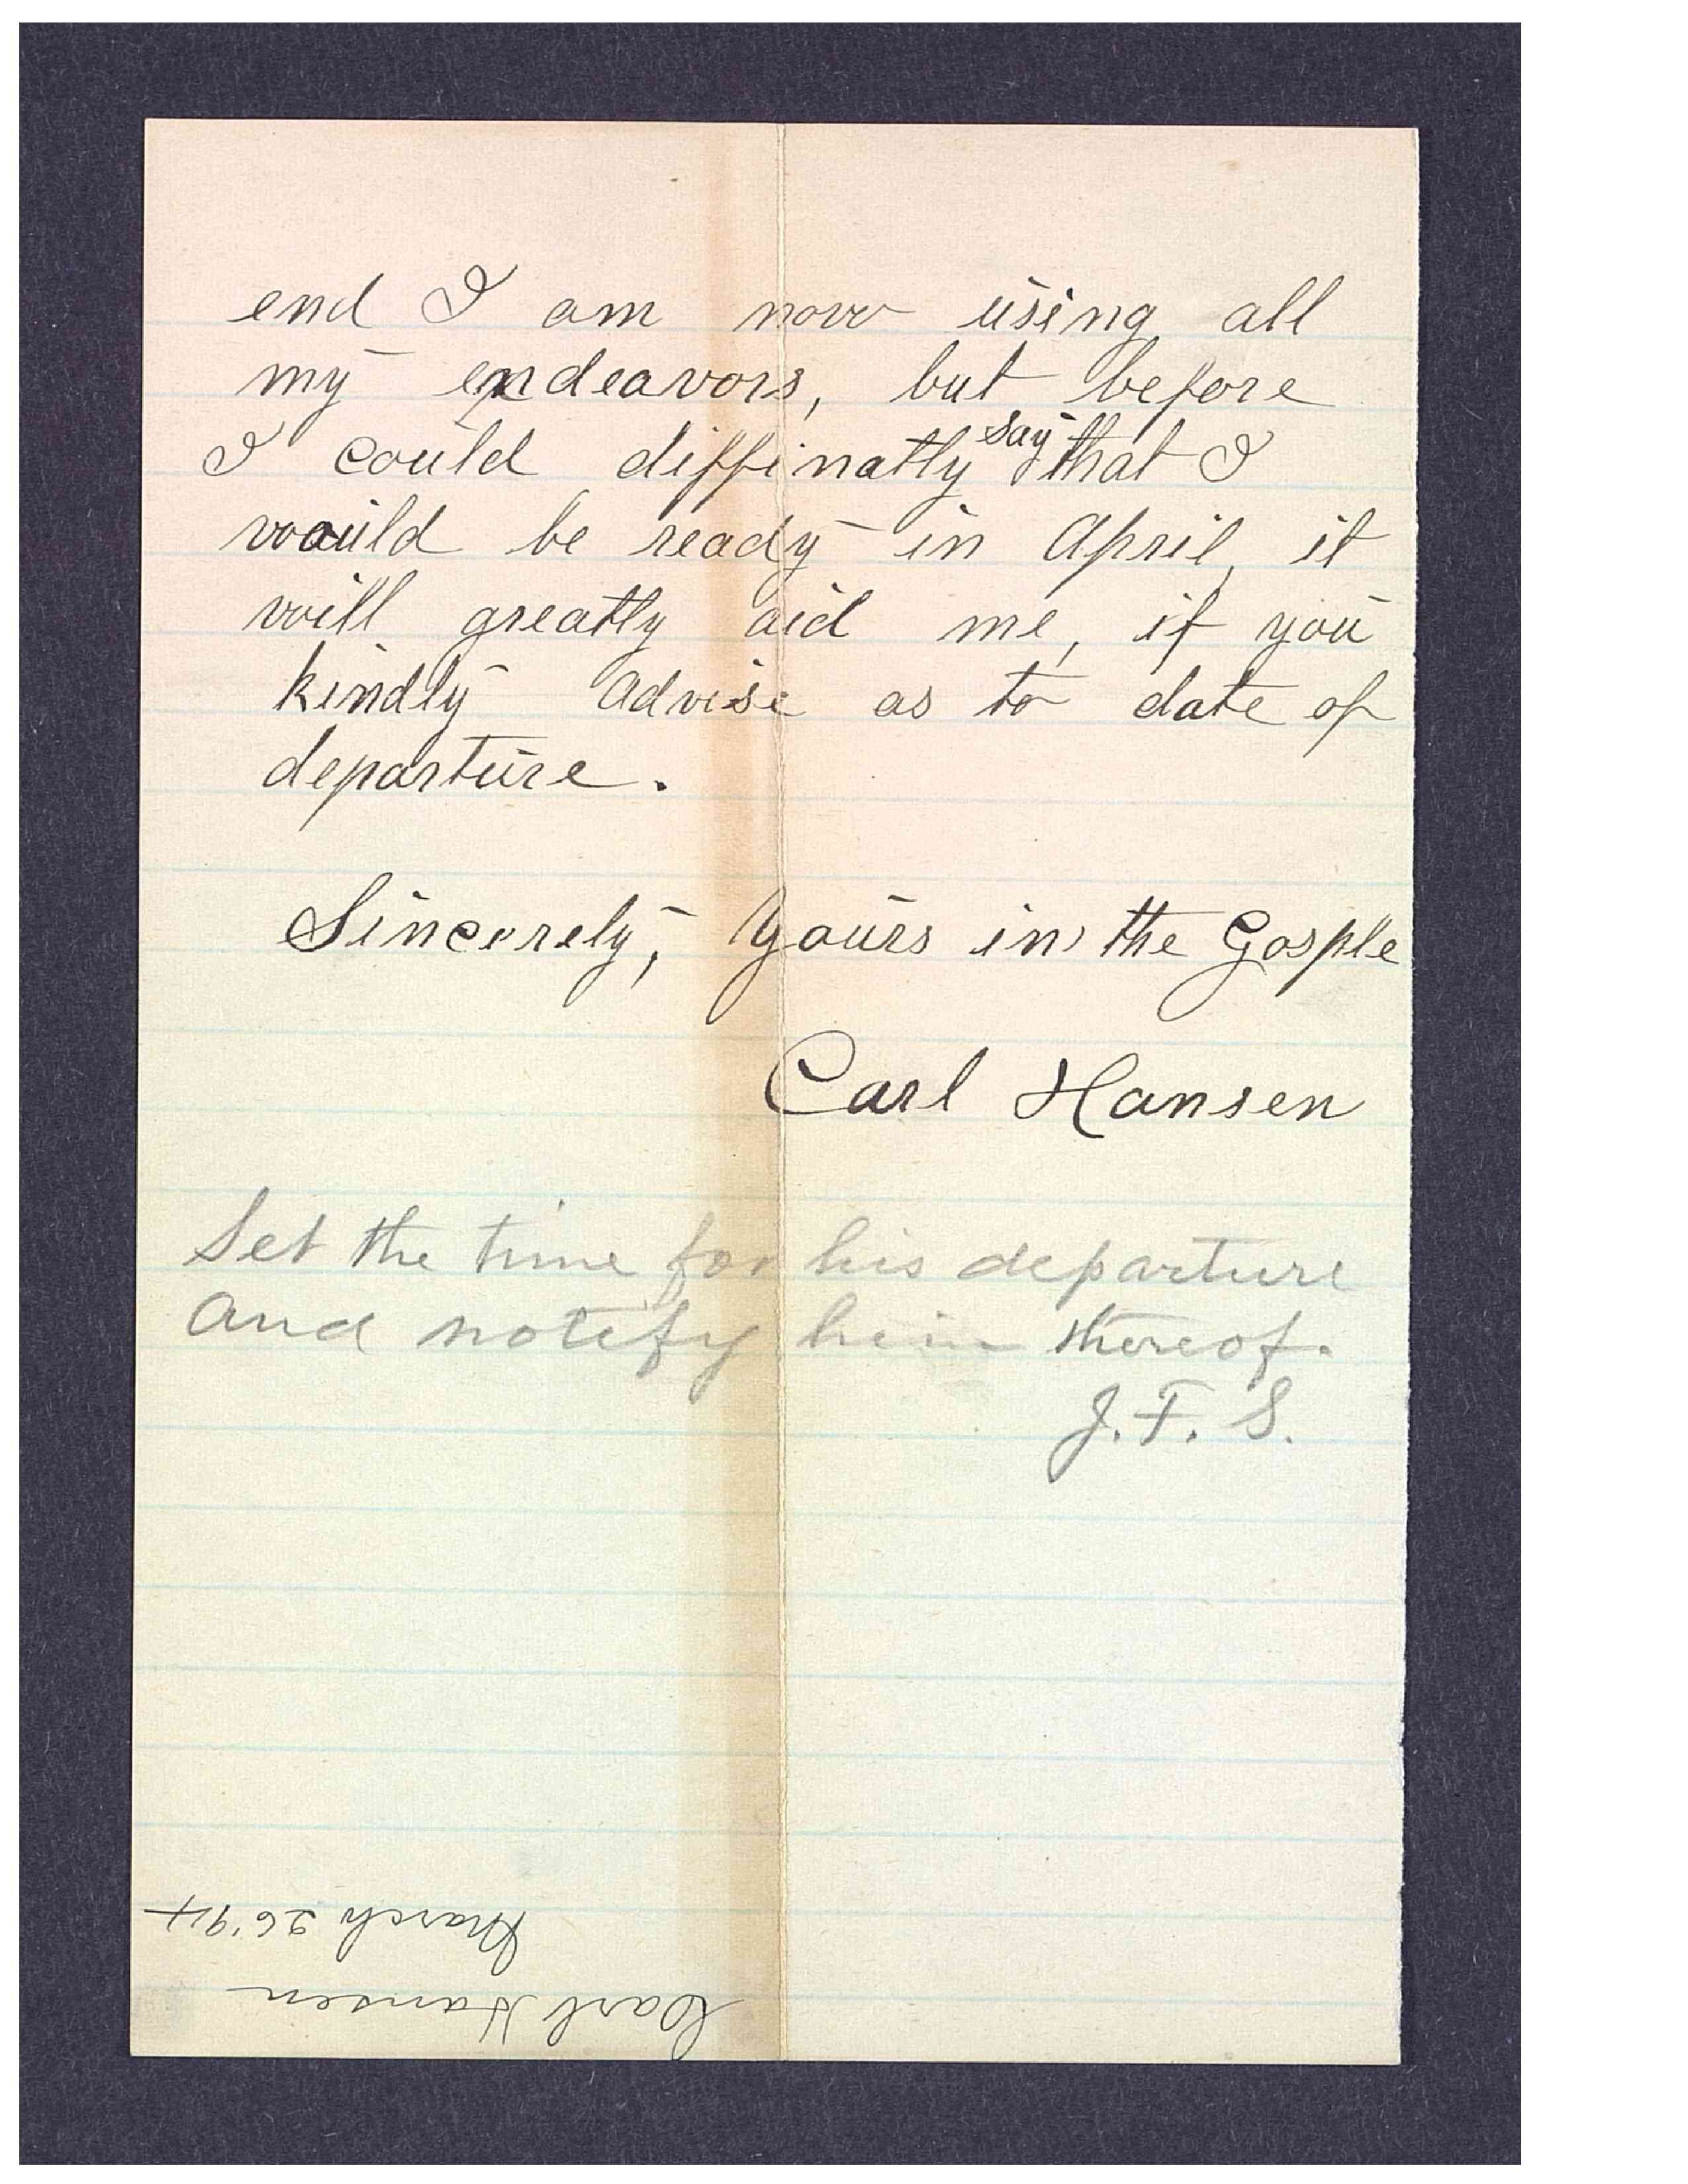 end I am now using all
my endeavors, but before
I could diffinatly say that I
would be ready in April, it
will greatly aid me, if you
kindly advise as to date of
departure.
Sincerely, Yours in the Gosple
Carl Hansen
Set the time for his departure
and notify him thereof.
J. F. S.
Carl Hansen
March 26 '94